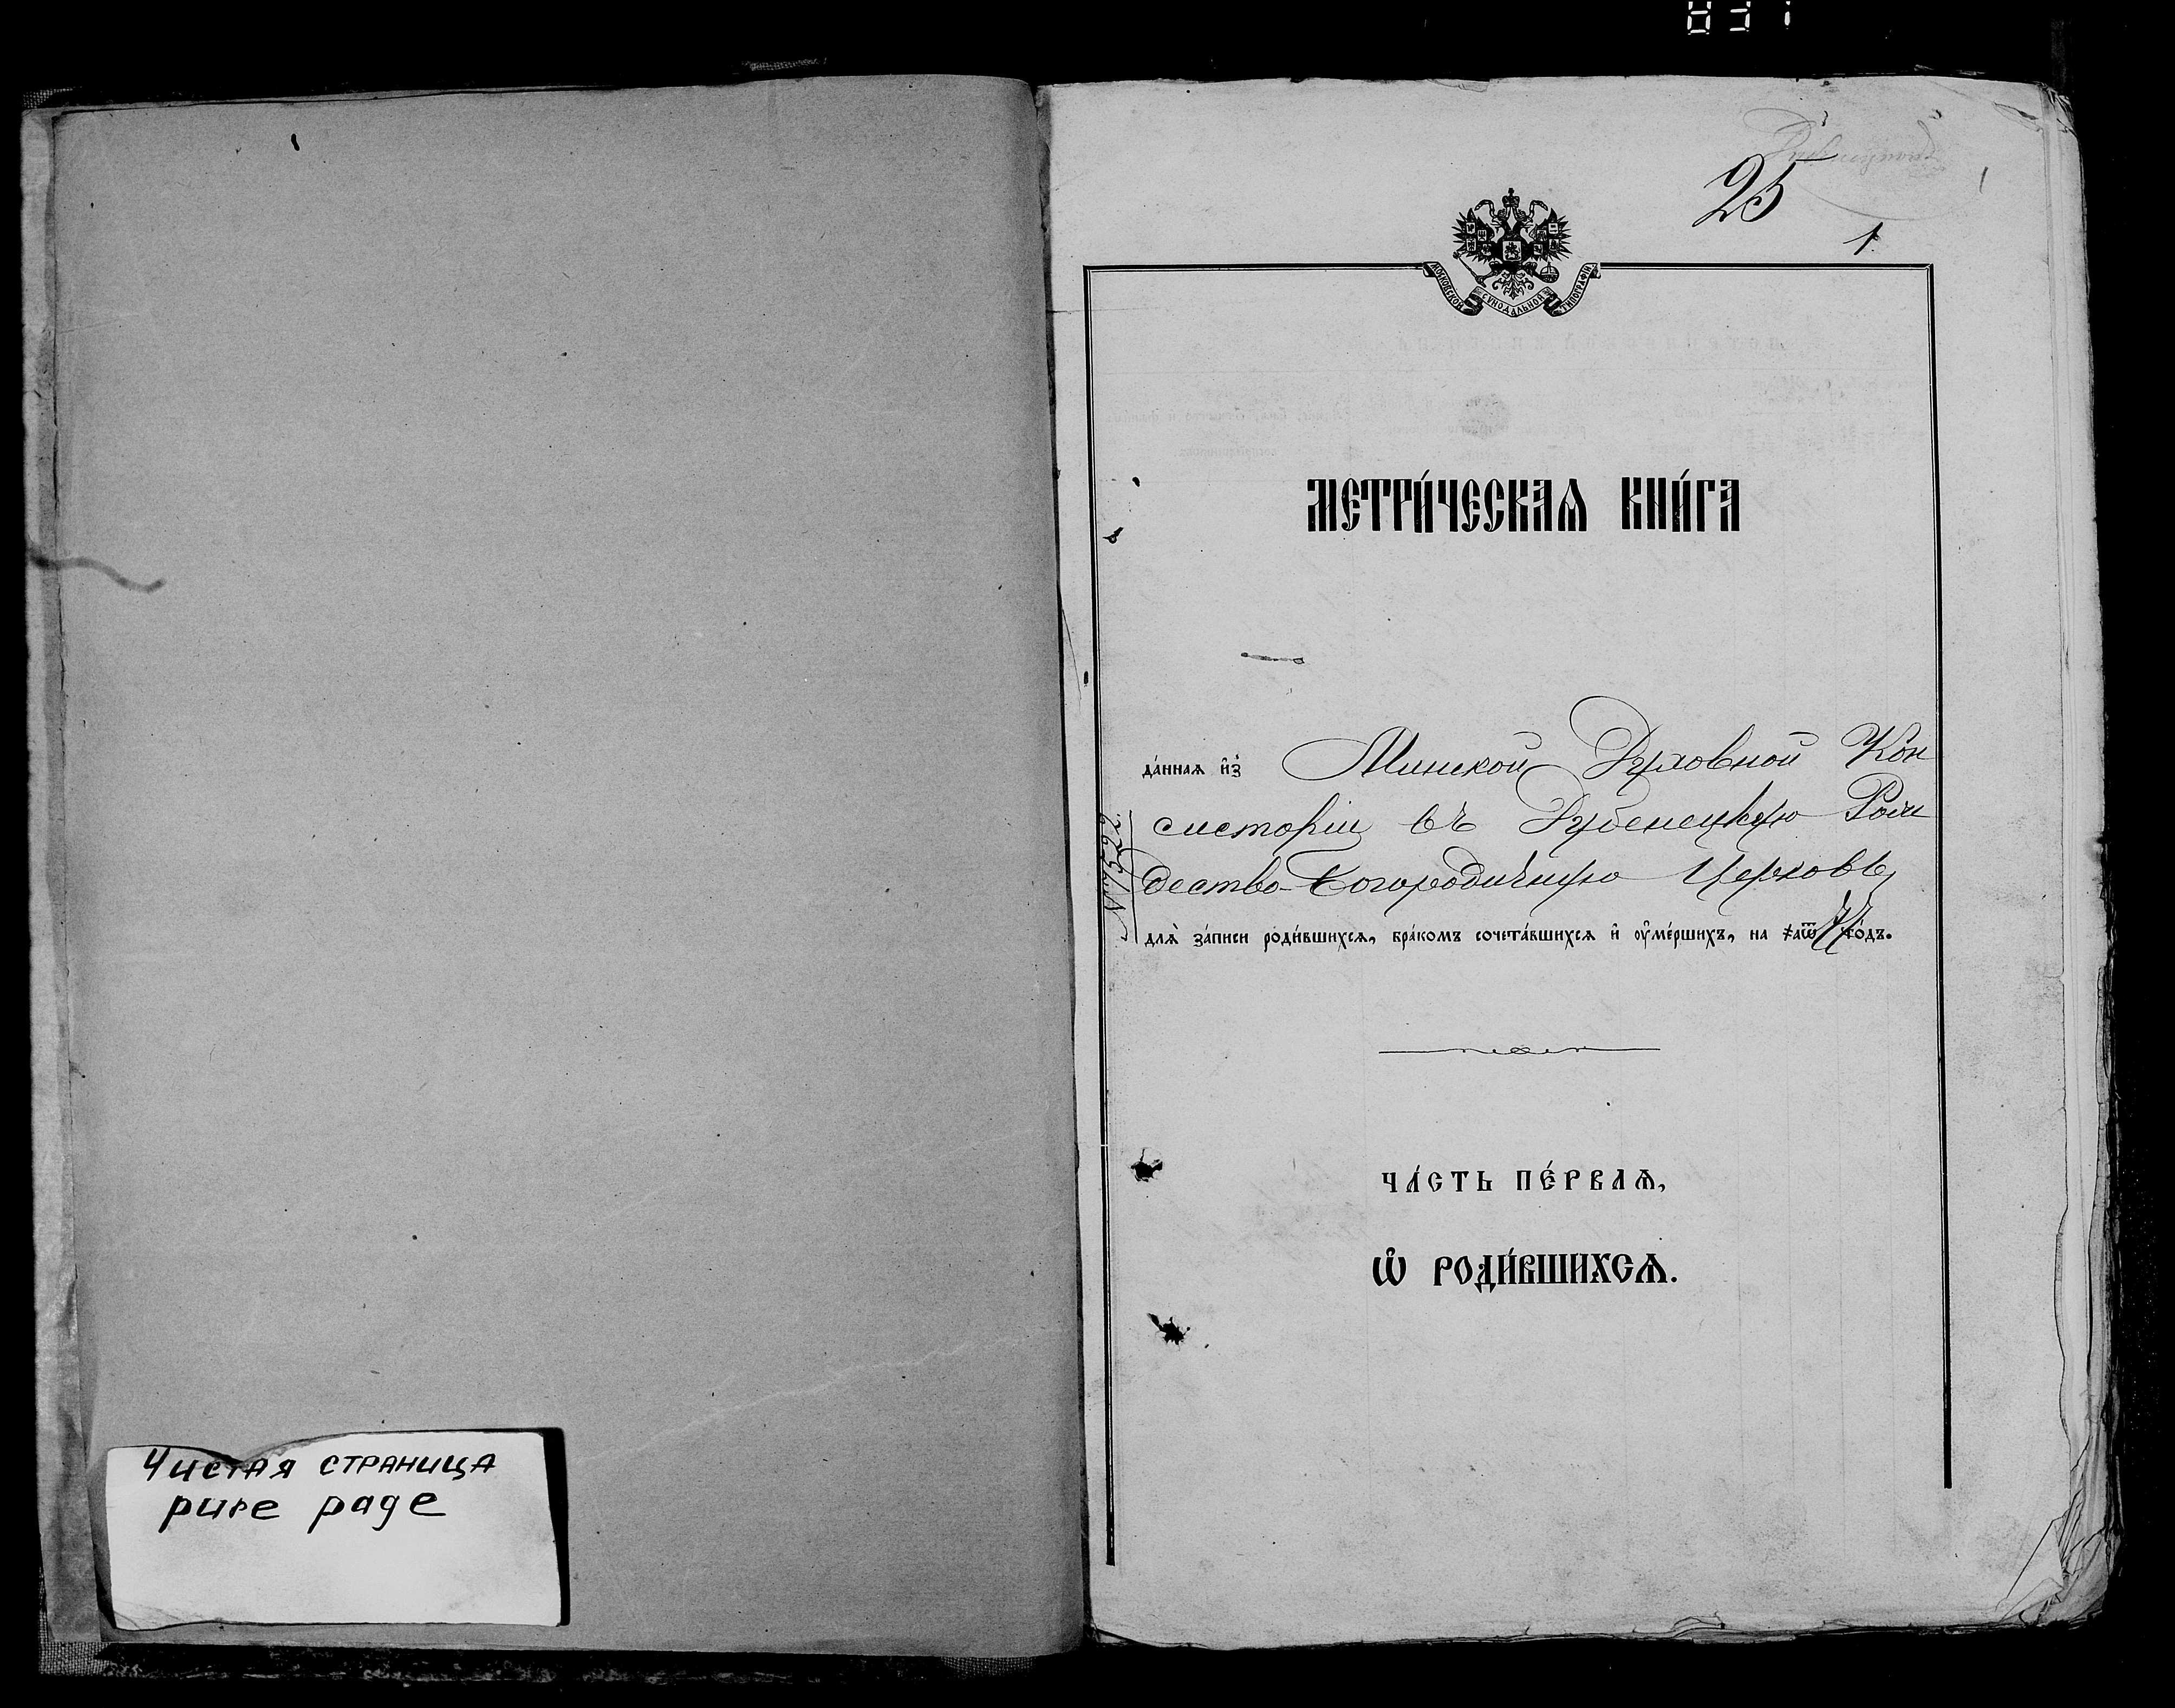 Чистая страница
pure page
25
1
1.
МОСКОВСКОЙ СУНОДАЛЬНОЙ ТИПОГРАФІИ
МЕТРИ́ЧЕСКАѦ КНИ́ГА
да́ннаѧ и҆з̾ Минской Духовной Кон
систоріи въ Дубенецкую Рож
дество-Богородичную Церковь,
№ 7522.
длѧ̀ за́писи роди́вшихсѧ, бра́комъ сочета́вшихсѧ и҆ ѹ҆ме́ршихъ, на ҂аѿ го́дъ.
ЧА́СТЬ ПЕ́РВАѦ,
Ѡ҆ РОДИ́ВШИХСѦ.